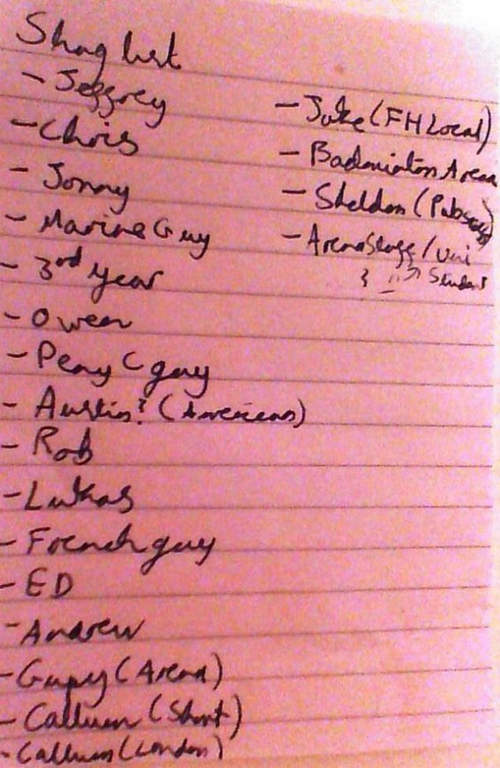 Shag list
- Jeffrey
- Chris
- Jonny
- Marine Guy
- 3rd year
- Owen
- Peny C guy
- Austin? (American)
- Rob
- Lukas
- French guy
- ED
- Andrew
- (Arena)
- Callum (Short)
- Callum (London)
- Jake (FH Local)
- Badminton Arena
- Sheldon
- Arena Stage / Uni
Student